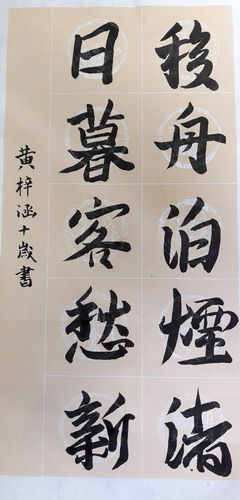 移舟泊煙渚
日暮客愁新
黄梓涵十歲書